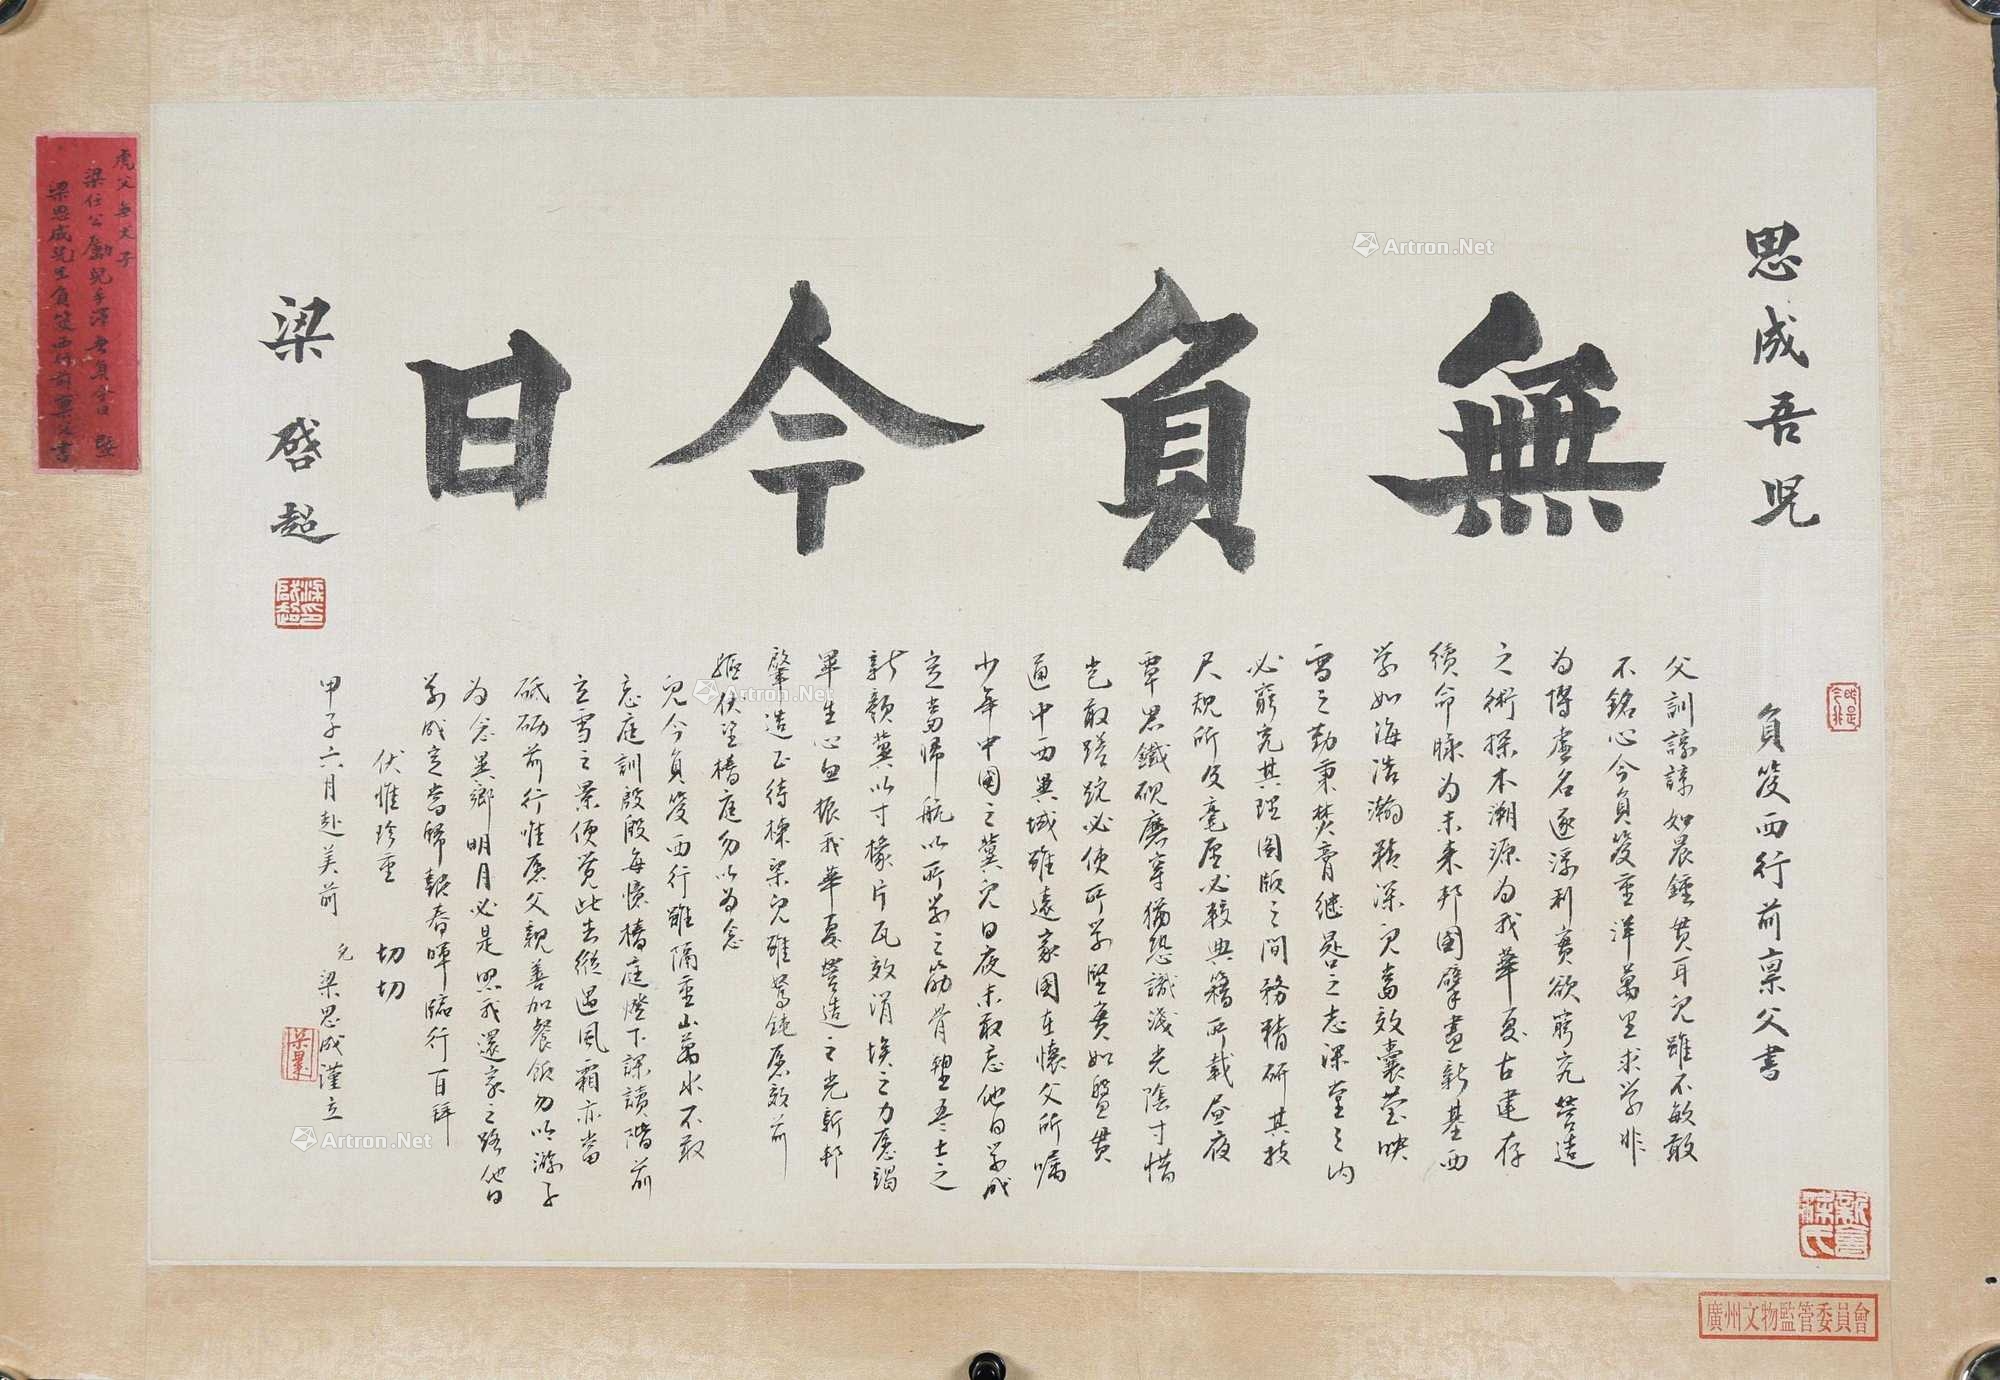 思成吾兒
無負今日
梁啓超
負笈西行前禀父書
父訓諄諄如晨鍾貫耳兒雖不敏敢
不銘心今負笈重洋萬里求学非
为博虛名逐浮利實欲窮究營造
之術探本溯源为我華夏古建存
續命脉为未来邦國擘畫新基西
学如海浩瀚精深兒當效囊萤映
雪之勤秉焚膏继晷之志深堂之内
必窮究其理圖版之間務精研其技
尺规所及毫厘必較典籍所載昼夜
覃思鐵硯磨穿猶恐識淺光陰寸惜
豈敢蹉跎必使所学堅實如磐貫
通中西異域雖遠家國在懷父所嘱
少年中國之冀兒日夜未敢忘他日学成
定當帰航以所学之筋骨塑吾土之
新顏冀以寸椽片瓦效涓埃之力愿竭
畢生心血振我華夏營造之光新邦
肇造正待棟梁兒雖驽鈍愿效前
驅伏望椿庭勿以为念
兒今負笈西行雖隔重山萬水不敢
忘庭訓殷殷每憶椿庭燈下課讀階前
立雪之景便覺此去縱遇風霜亦當
砥砺前行惟愿父親善加餐飯勿以游子
为念異鄉明月必是照我還家之路他日
学成定當歸報春暉臨行百拜
伏惟珍重　切切
甲子六月赴美前　兒梁思成谨立
虎父無犬子
梁任公勵兒手澤無負今日 暨
梁思成先生負笈西行前禀父書
新會梁氏
廣州文物監管委員會
Artron.Net
Artron.Net
Artron.Net
Artron.Net